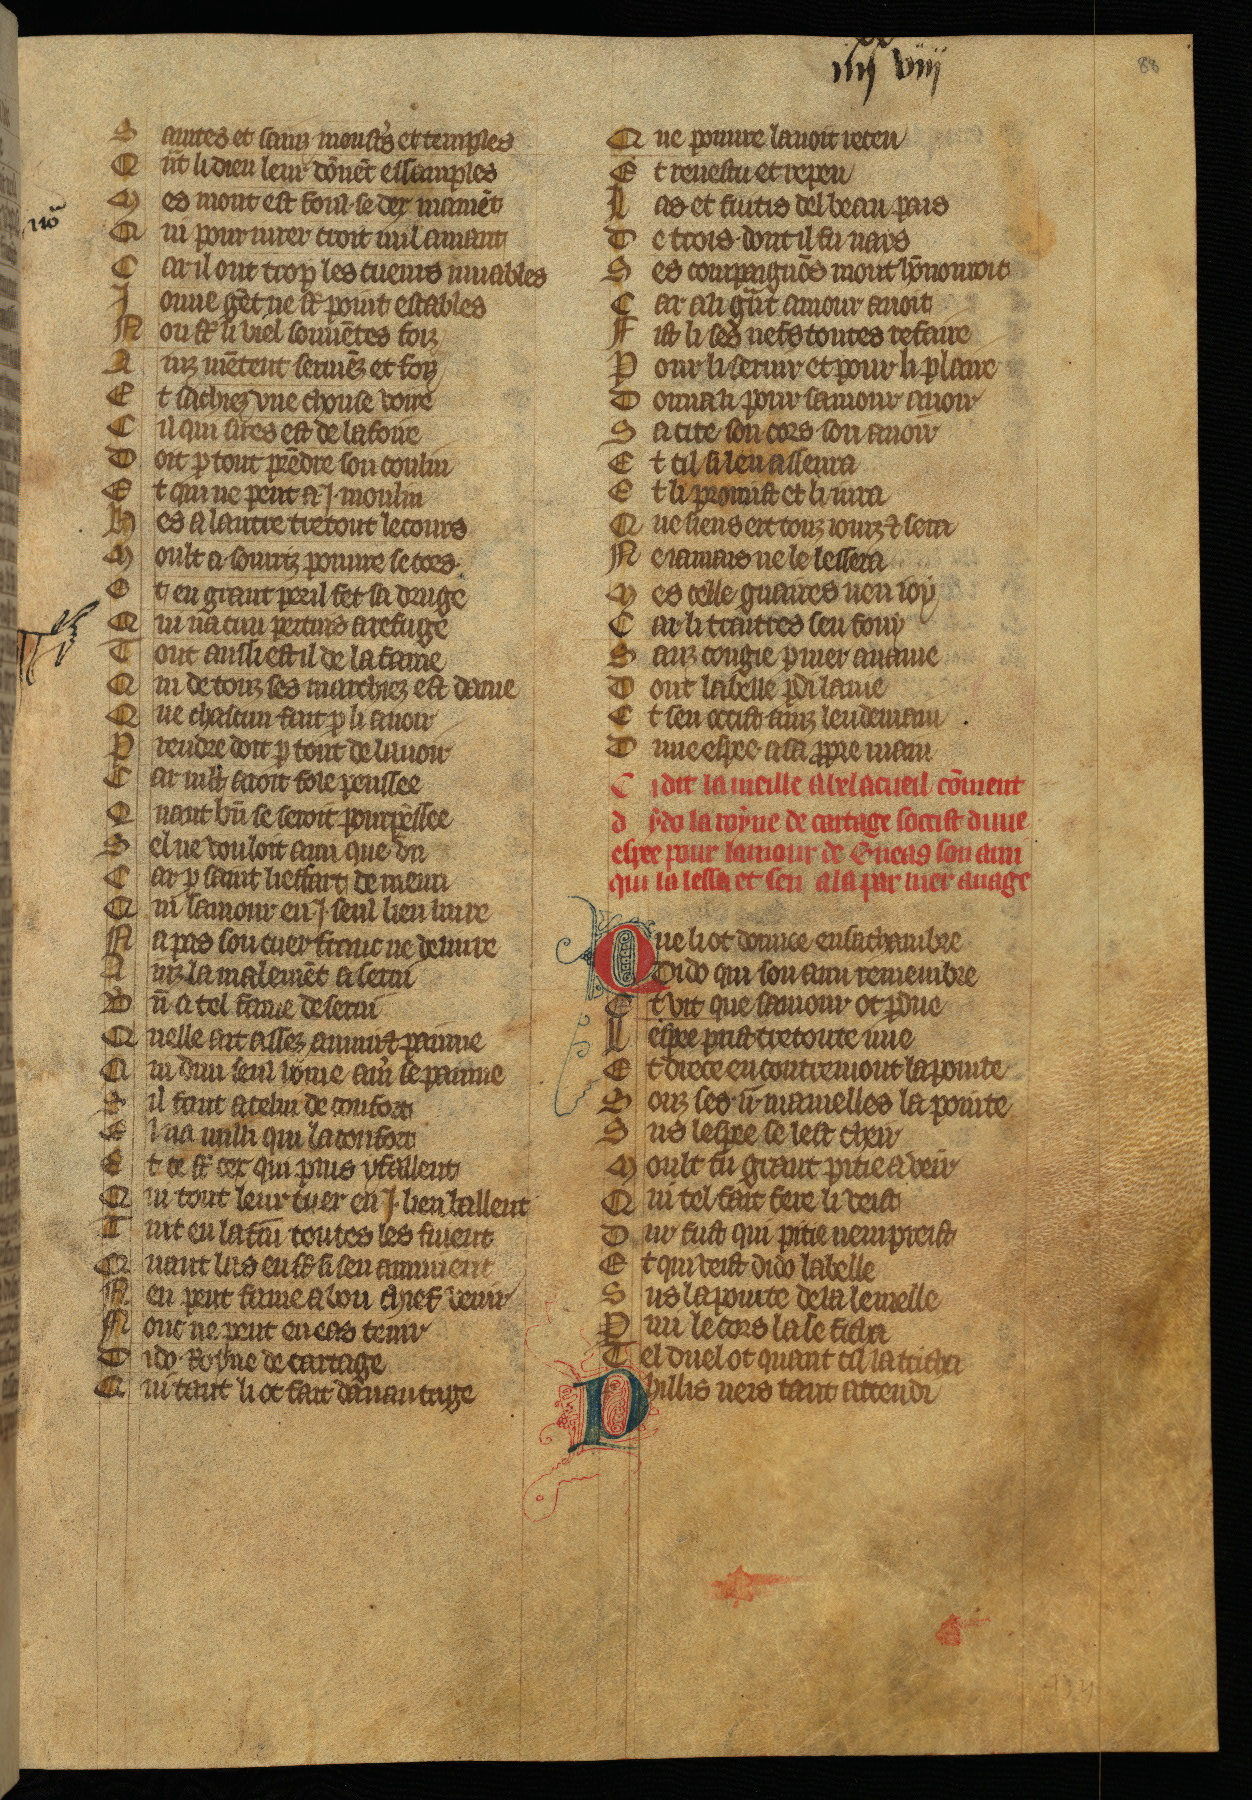 iiij xx viij
88
no
S aintes et sainz moustˢs et temples
Q ñt li dieu leur dõnẽt essamples
M es mout est fouls se dex mamẽt
Q ui pour iurer croit nul amant
C ar il ont trop les cuenrs muables
J oune gẽt ne sõt point estables
N on sõt li viel souuẽtes foiz
A inz mẽtent sermẽs et foy
E t sachiez vne chouse voire
C il qui sires est de la foire
D oit p tout prẽdre son toulin
E t qui ne peut a .j. moulin
H es a lautre tretout le cours
M oult a souriz poure secors
E t en grant peril fet sa druge
Q ui na cun pertuis a refuge
T out ausi est il de la fame
Q ui de touz ses marchiez est dame
Q ue chascun fait p li auoir
P rendre doit p tout de lauoir
C ar mlt aroit fole penssee
Q uant bñ se seroit pourpẽssee
S el ne vouloit ami que vn
C ar p saint lieffart de meun
Q ui samour en .j. seul lieu liure
N a pas son cuer franc ne deliure
A inz la malemẽt aserui
B ñ a tel fame deserui
Q uelle ait assez ãnui & painne
Q ui dun seul home amˢ se painne
S il faut a celui de confort
E l na nulli qui la confort
E t ce sõt cex qui plus y faillent
Q ui tout leur cuer en .j. lieu baillent
T uit en la fin toutes les fuient
Q uant las en sõt si sen annuient
N en peut fame a bon chief venir
N onc ne peut eneas tenir
D ido Royne de cartage
Q ui tant li ot fait dãuantage
Q ue poure lauoit receu
E t reuestu et repeu
L as et fuitis del beau pais
D e trois dont il fu nays
S es compagnõs mout hõnoroit
C ar a li grãt amour auoit
F ist li ses nefs toutes refaire
P our li seruir et pour li plaire
D onna li pour samour auoir
S a cite son cors son auoir
E t cil si len asseura
E t li promist et li iura
Q ue siens ert touz iourz & sera
N e iamais ne le lessera
M es celle guaires nen ioy
C ar li traitres sen fouy
S anz congie p mer a nauie
D ont la belle pdi la uie
E t sen occist ainz lendemain
D une espee a sa ppre main
C i dit la uieille a belacueil cõment
d ydo la royne de cartage soccist dune
espee pour lamour de Eneas son ami
qui la lessa et sen ala par mer a nage
Que li ot donnee en sa chambre
Dido qui son ami remembre
E t vit que samour ot pdue
L espee prist tretoute nue
E t drece en contremont la pointe
S ouz ses .ii. mamelles la pointe
S us lespee se lest cheir
M oult fu grant pitie a veir
Q ui tel fait fere li veist
D ur fust qui pitie nen preist
E t qui veist dido la belle
S us la pointe de la lemelle
P mi le cors la se ficha
T el duel ot quant cil la tricha
Phillis ueis tant attendi